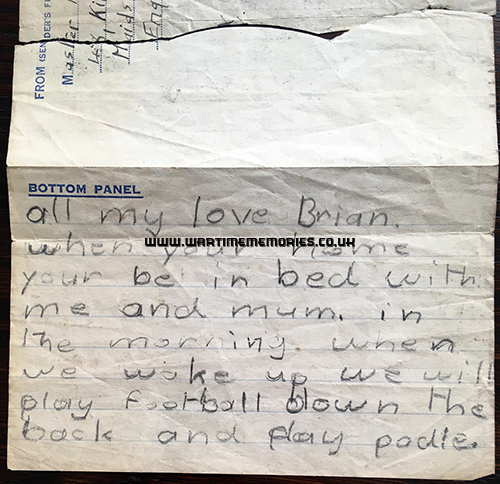 FROM (SENDER'S F
Master
Maids
Eng
BOTTOM PANEL
all my love Brian.
when your home
WWW.WARTIMEMEMORIES.CO.UK
your be in bed with
me and mum. in
the morning. when
we wake up we will
play football down the
back and play padle.